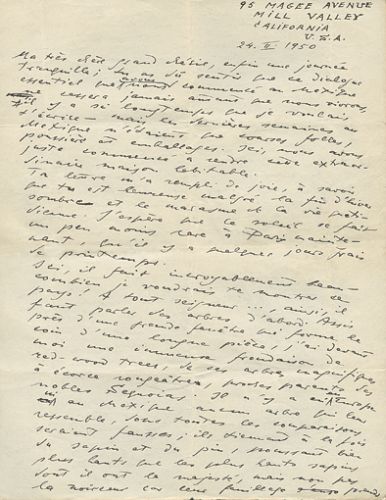 95 MAGEE AVENUE
MILL VALLEY
CALIFORNIA
U.S.A.
24. II. 1950
Ma très chère grand Chérie, enfin une journée
tranquille; tu as dû sentir que ce dialogue
essentiel que nous avons commencé au Mexique
ne cessera jamais autant que nous vivrons,
Il y a si longtemps que je voulais
t'écrire — mais les dernières semaines au
Mexique n'étaient que courses folles,
et emballages. Ici, nous avons
juste commencé à rendre cette extraor-
dinaire maison habitable.
Ta lettre m'a rempli de joie, à savoir
que tu es lumineuse malgré la fin d'hiver
sombre et le marasme de la vie quoti-
dienne. J'espère que le soleil se fait
un peu moins rare à Paris mainte-
nant, qu'il y a quelques jours
le printemps.
Ici, il fait incroyablement beau—
combien je voudrais te montrer ce
pays! A tout seigneur..., ainsi, il
faut parler des arbres d'abord. Assis
près d'une grande fenêtre qui forme le
coin d'une longue pièce, j'ai devant
moi une immense frondaison de
red-wood trees, de ces arbres magnifiques
à écorce rougeâtre, proches parents des
nobles Sequoias. Il n'y a ni en Europe
ni au Mexique aucun arbre qui leur
ressemble, donc toutes les comparaisons
seraient fausses; ils tiennent à la fois
du sapin et du pin, poussant bien
plus hauts que les plus hauts sapins
dont il ont la majesté, mais non pas
la noirceur car leur feuillage